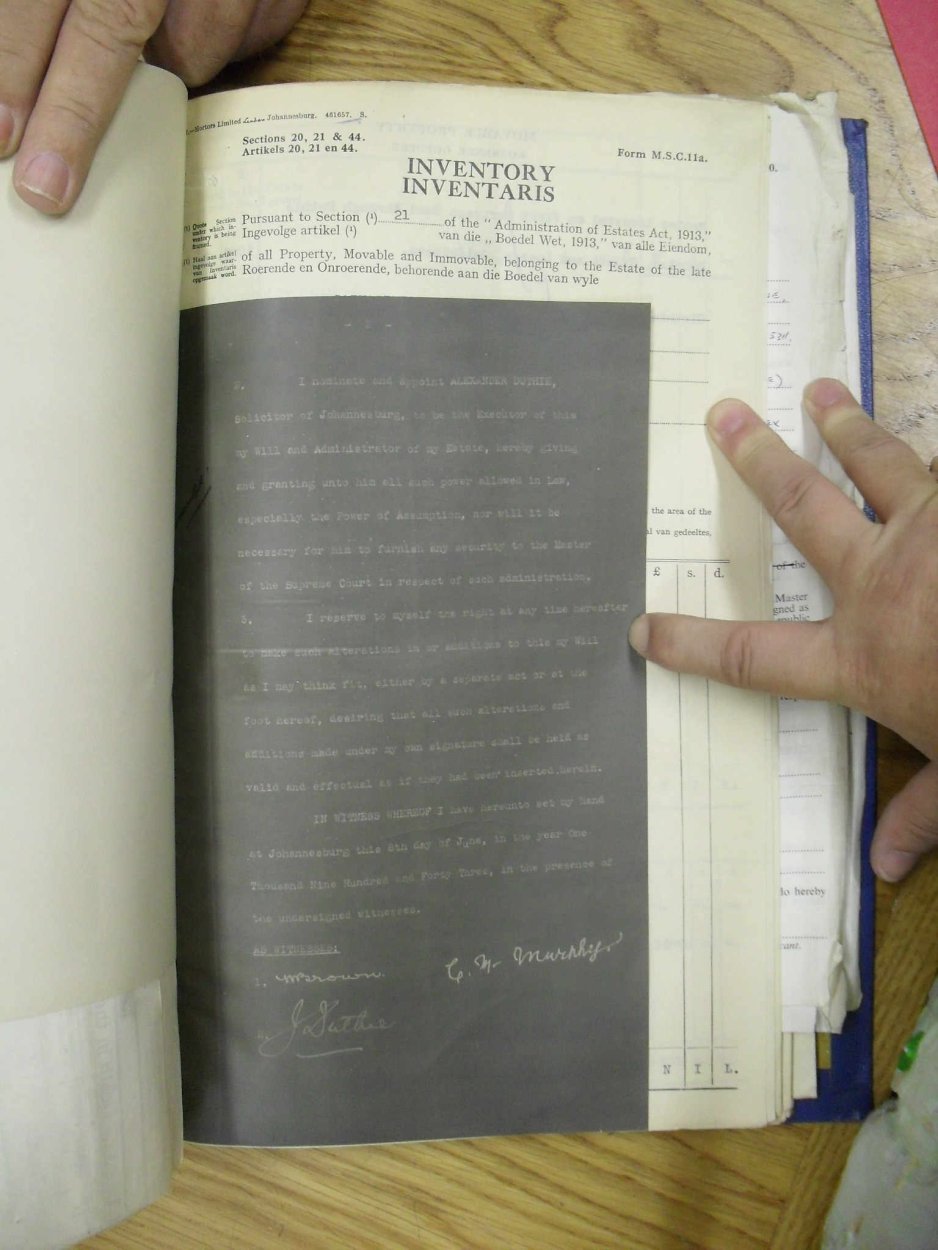 Hortors Limited Johannesburg. 461657. S.
Sections 20, 21 & 44.
Artikels 20, 21 en 44.
Form M.S.C.11a.
INVENTORY
INVENTARIS
(¹) Quote Section under which inventory is being framed.
Pursuant to Section (¹) 21 of the "Administration of Estates Act, 1913,"
Ingevolge artikel (¹) van die „Boedel Wet, 1913," van alle Eiendom,
(¹) Haal aan artikel ingevolge waarvan Inventaris opgemaak word.
of all Property, Movable and Immovable, belonging to the Estate of the late
Roerende en Onroerende, behorende aan die Boedel van wyle
2. I nominate and appoint ALEXANDER DUTHIE,
Solicitor of Johannesburg, to be the Executor of this
my Will and Administrator of my Estate, hereby giving
and granting unto him all such power allowed in Law,
especially the Power of Assumption, nor will it be
necessary for him to furnish any security to the Master
of the Supreme Court in respect of such administration.
3. I reserve to myself the right at any time hereafter
to make such alterations in or additions to this my Will
as I may think fit, either by a separate act or at the
foot hereof, desiring that all such alterations and
additions made under my own signature shall be held as
valid and effectual as if they had been inserted herein.
IN WITNESS WHEREOF I have hereunto set my hand
at Johannesburg this 8th day of June, in the year One
Thousand Nine Hundred and Forty Three, in the presence of
the undersigned witnesses.
AS WITNESSES:
1. Brown.
C. N. Murphy
J Duthie
the area of the
al van gedeeltes,
£ s. d.
N I L.
of the
Master
gned as
public
do hereby
cant.